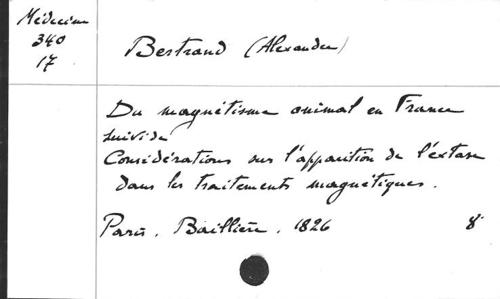 Médecine
340
17
Bertrand (Alexandre)
Du magnétisme animal en France
suivi de
Considérations sur l'apparition de l'extase
dans les traitements magnétiques.
Paris. Baillière. 1826 8°